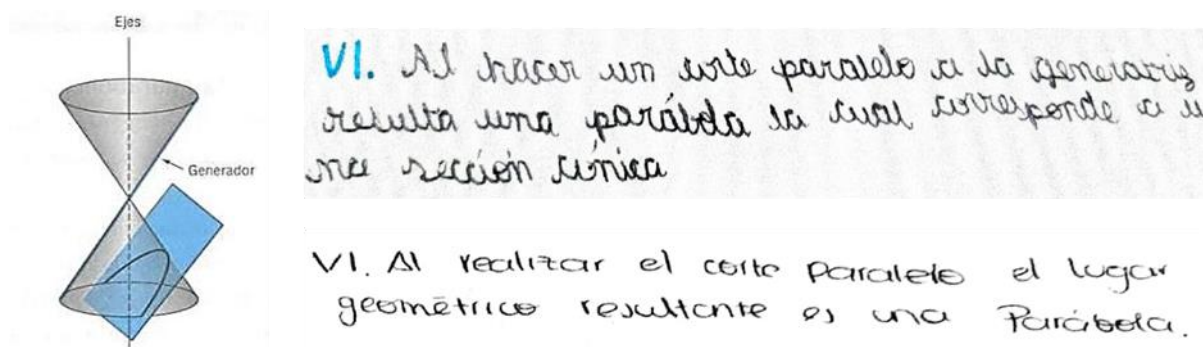 Ejes
Generador
VI. Al hacer un corte paralelo a la generatriz
resulta una parábola la cual corresponde a u
na sección cónica
VI. Al realizar el corte paralelo el lugar
geométrico resultante es una Parábola.